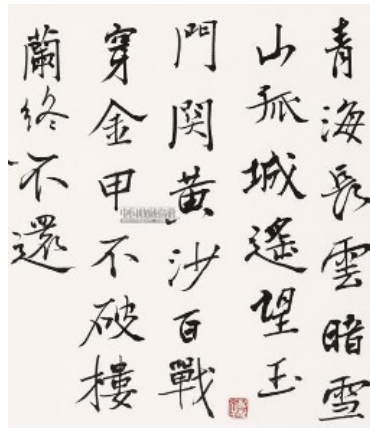 青海長雲暗雪
山孤城遙望玉
門関黃沙百戰
穿金甲不破樓
蘭終不還